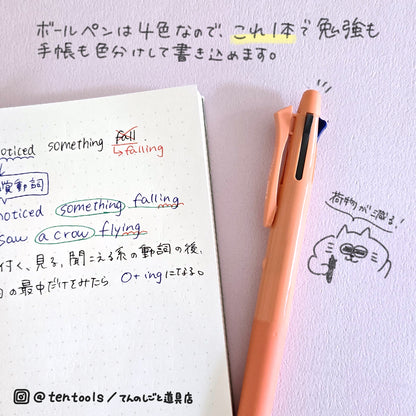 ボールペンは4色なので、これ1本で勉強も
手帳も色分けして書き込めます。
noticed something fall.
↳falling
動詞
noticed something falling
saw a crow flying
付く、見る、聞こえる系の動詞の後、
の最中だけをみたら O+ingになる。
荷物が減る!
@tentools/てんのしごと道具店